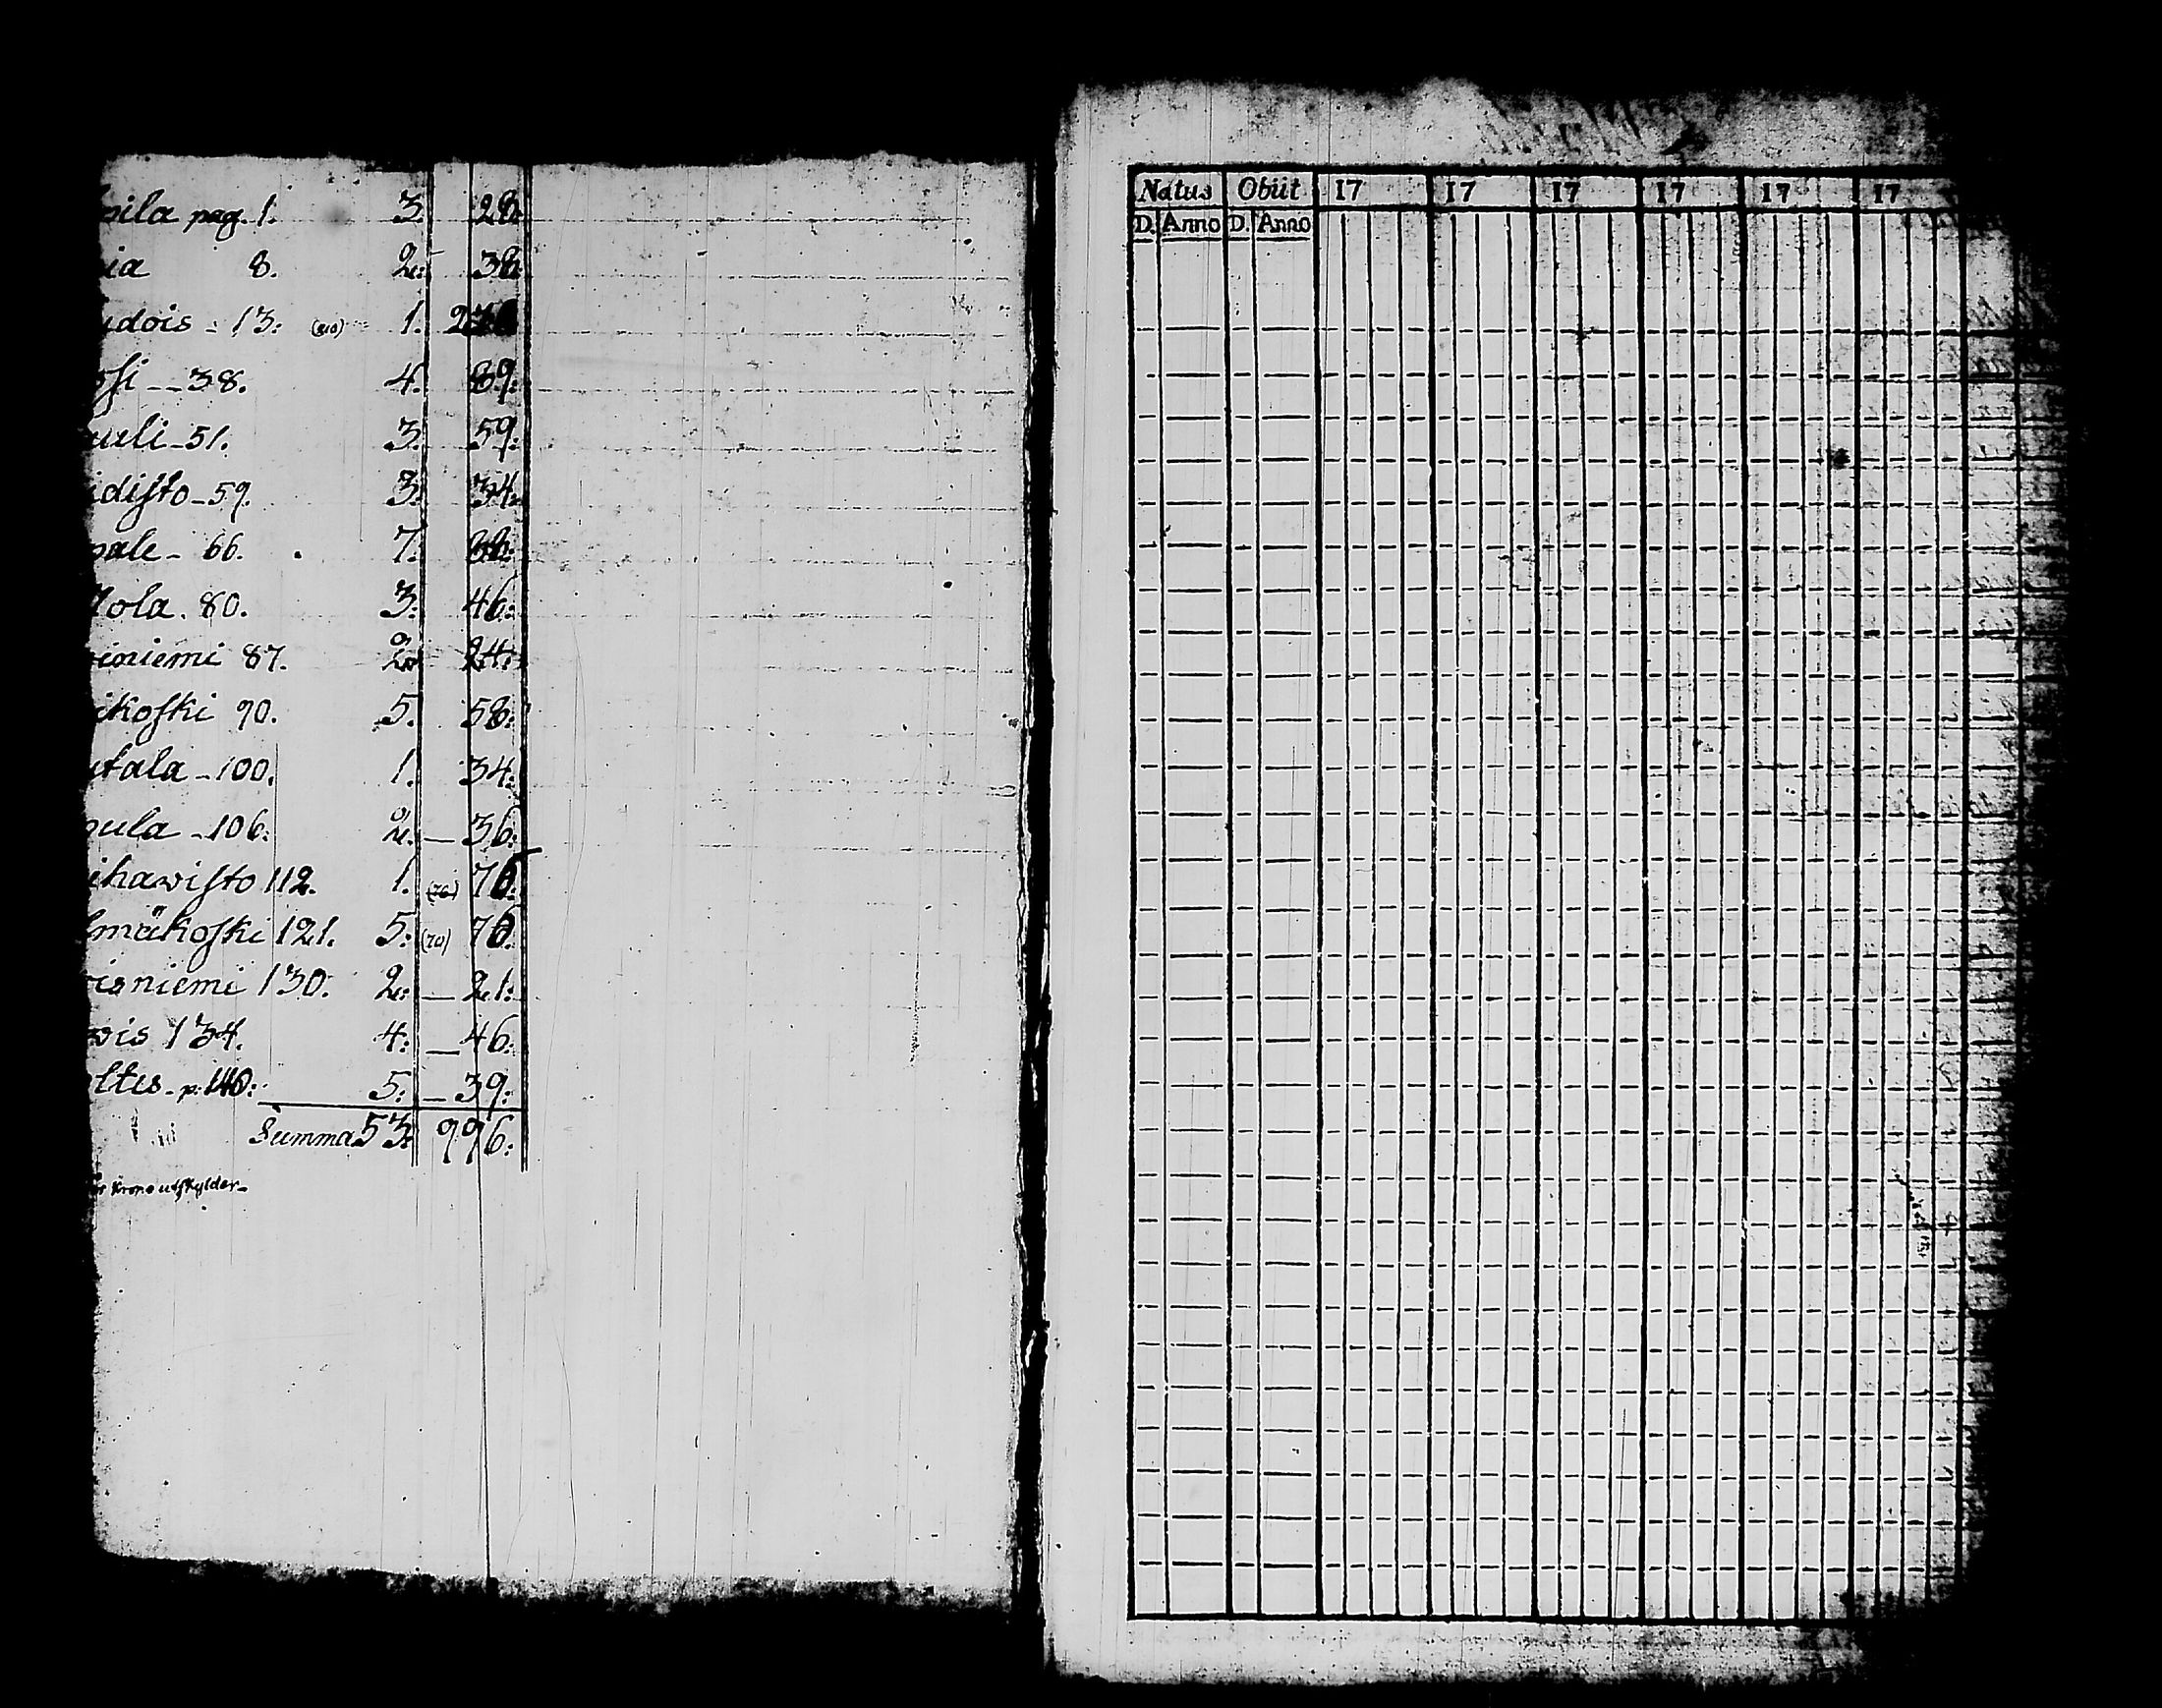 pila pag. 1. 3. 28.
ia 8. 2. 38.
udois - 13. (210) 1.
ssi - - 38. 4. 89.
uuli - 51. 3. 59.
idisto - 59. 3. 34.
pale - 66. 7.
ola. 80. 3. 46.
iniemi 87. 2. 24.
ikoski 90. 5. 58.
tala - 100. 1. 34.
pula - 106. 2. — 36.
ihawisto 112. 1. (76) 76.
lmäkoski 121. 5. (70) 76.
isniemi 130. 2. — 21.
wis 134. 4. — 46.
ltes - p. 140. 5. — 39.
Summa 53. 996.
Krono utskylder -
Natus Obiit 17 17 17 17 17 17
D. Anno D. Anno